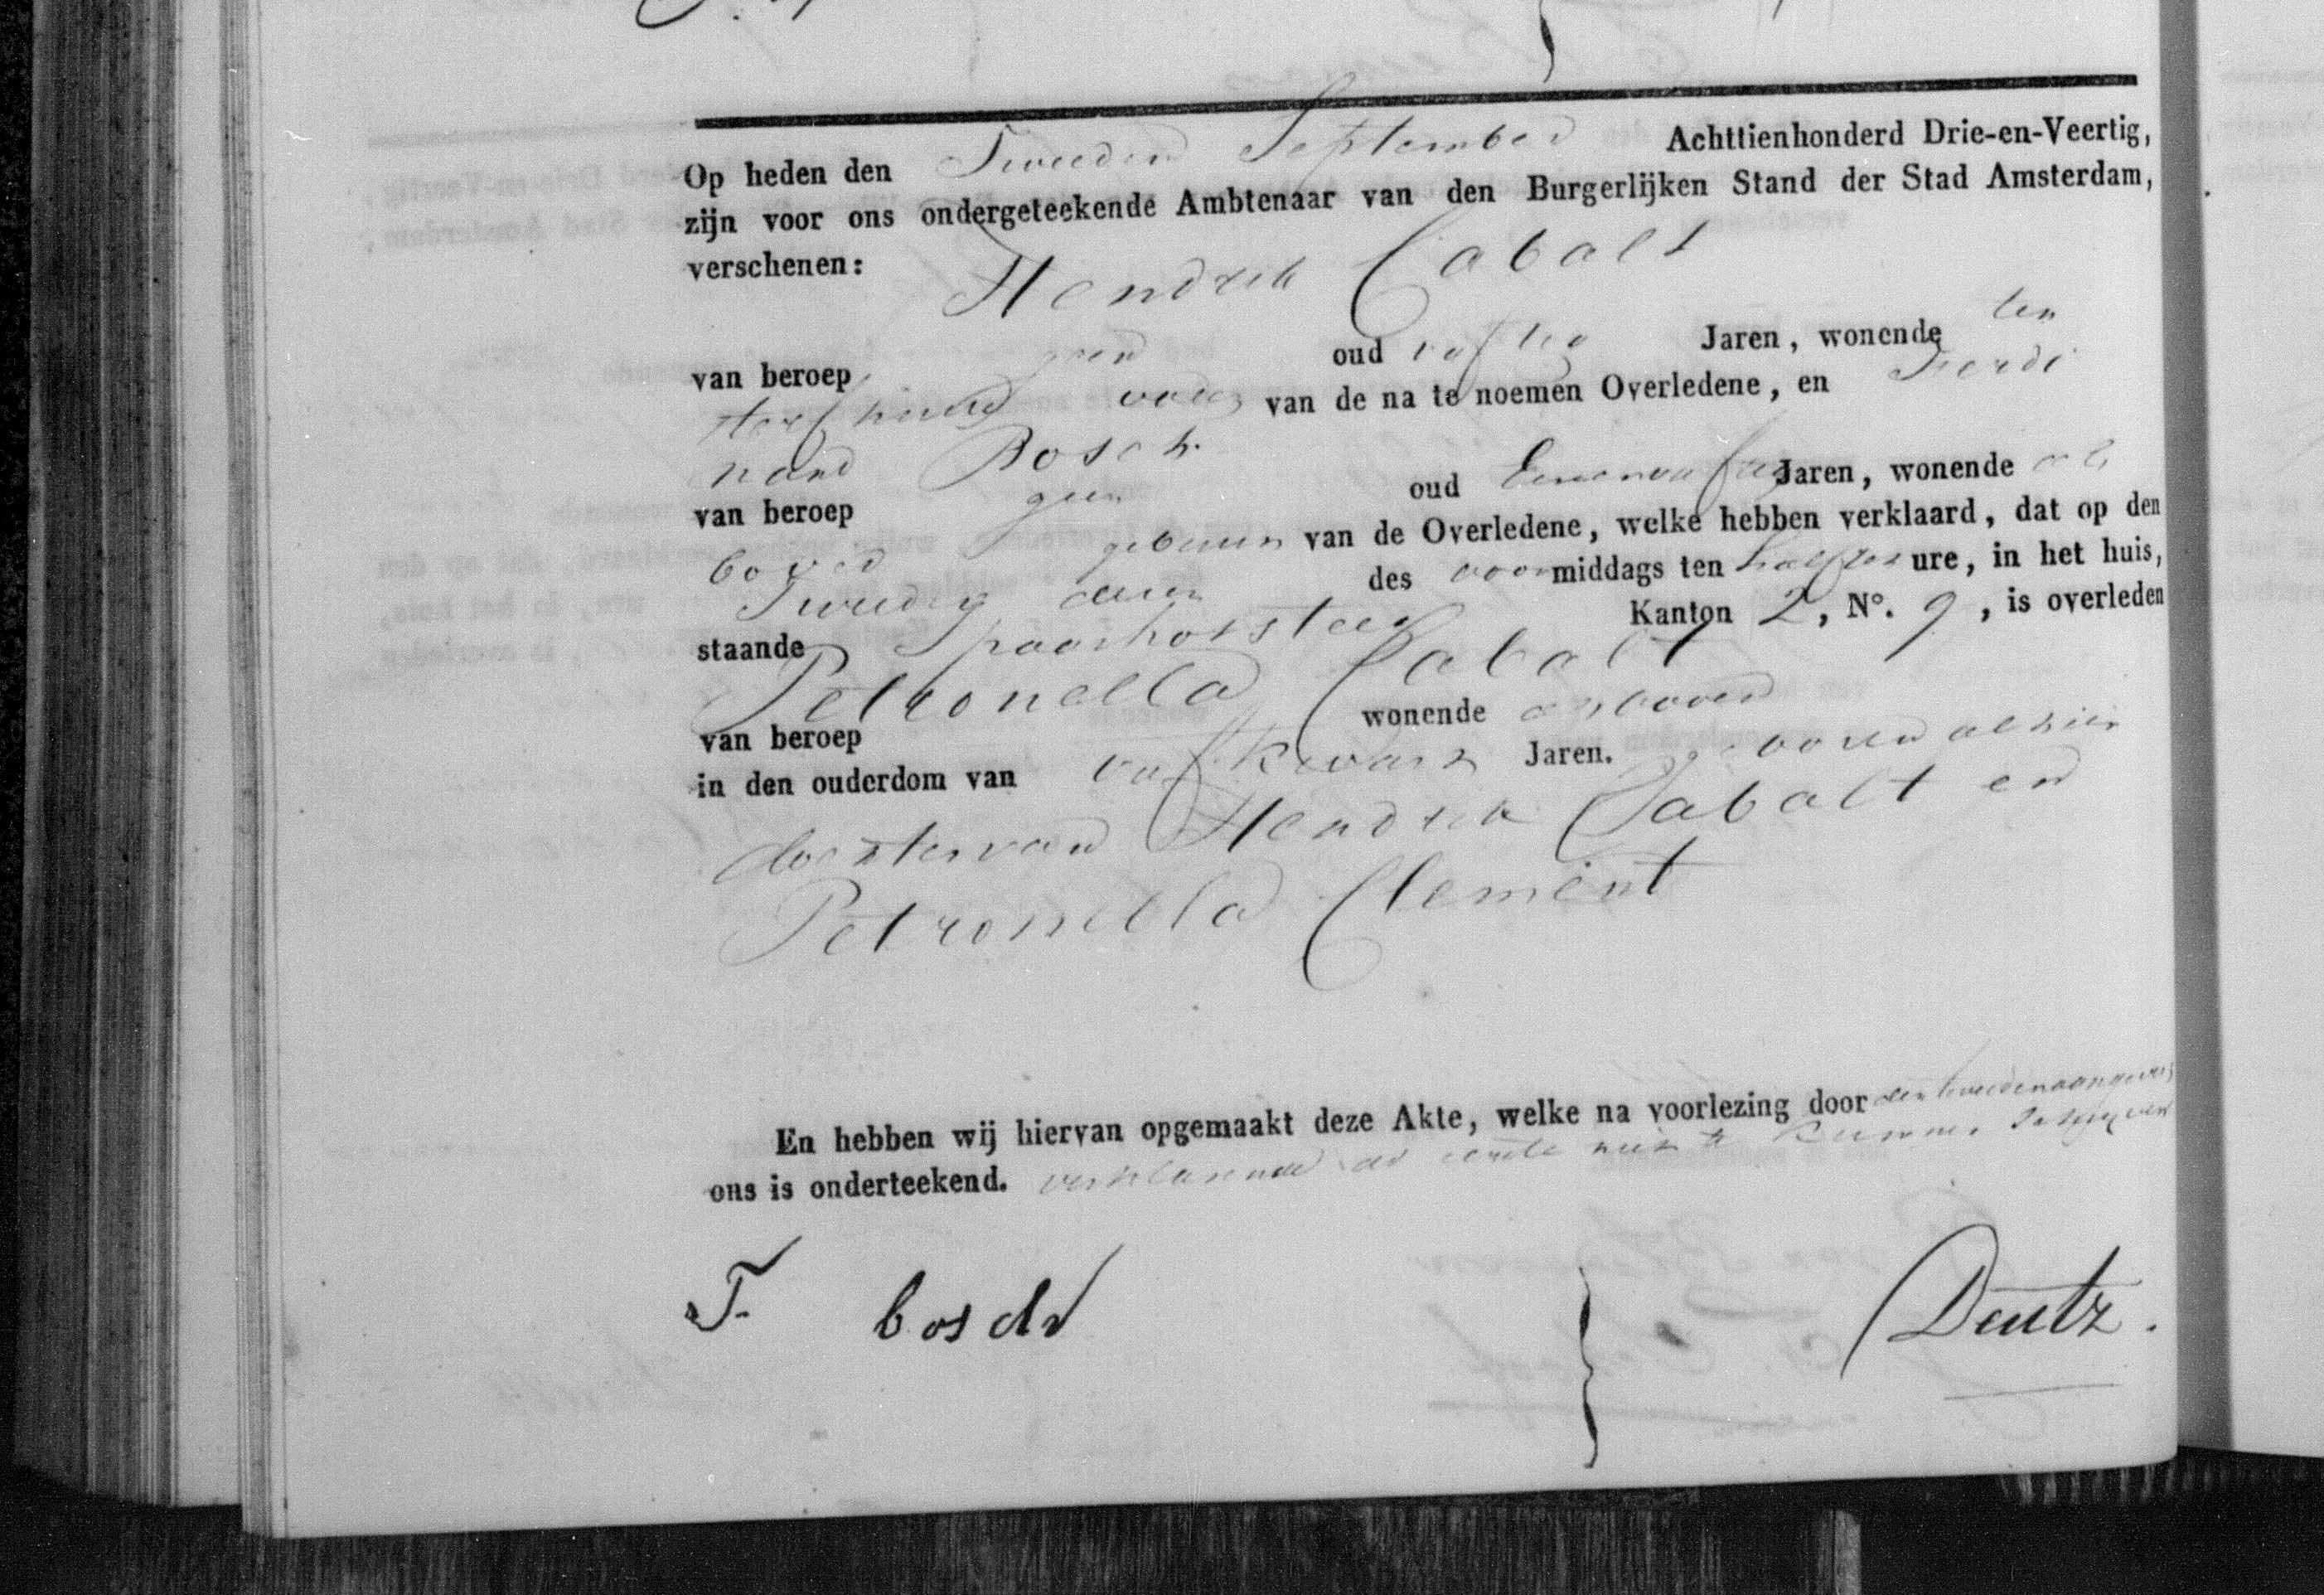 Op heden den Tweeden September Achttienhonderd Drie-en-Veertig,
zijn voor ons ondergeteekende Ambtenaar van den Burgerlijken Stand der Stad Amsterdam,
verschenen: Hendrik Cabalt
van beroep geen oud vyftig Jaren, wonende ten
sterfhuize vader van de na te noemen Overledene, en Ferdi
nand Bosch
van beroep geen oud Eenenvyftig Jaren, wonende als
boven gebuur van de Overledene, welke hebben verklaard, dat op den
Tweeden dezer des voormiddags ten half ure, in het huis,
staande Kanton 2, N°. 9, is overleden
Petronella Cabalt
van beroep wonende als boven
in den ouderdom van vyf Kwart Jaren. geboren alhier
dochter van Hendrik Cabalt en
Petronella Clement
En hebben wij hiervan opgemaakt deze Akte, welke na voorlezing door den tweeden aangever
ons is onderteekend. verklarende de eerste niet te kunnen schryven
F bosch
Deutz.